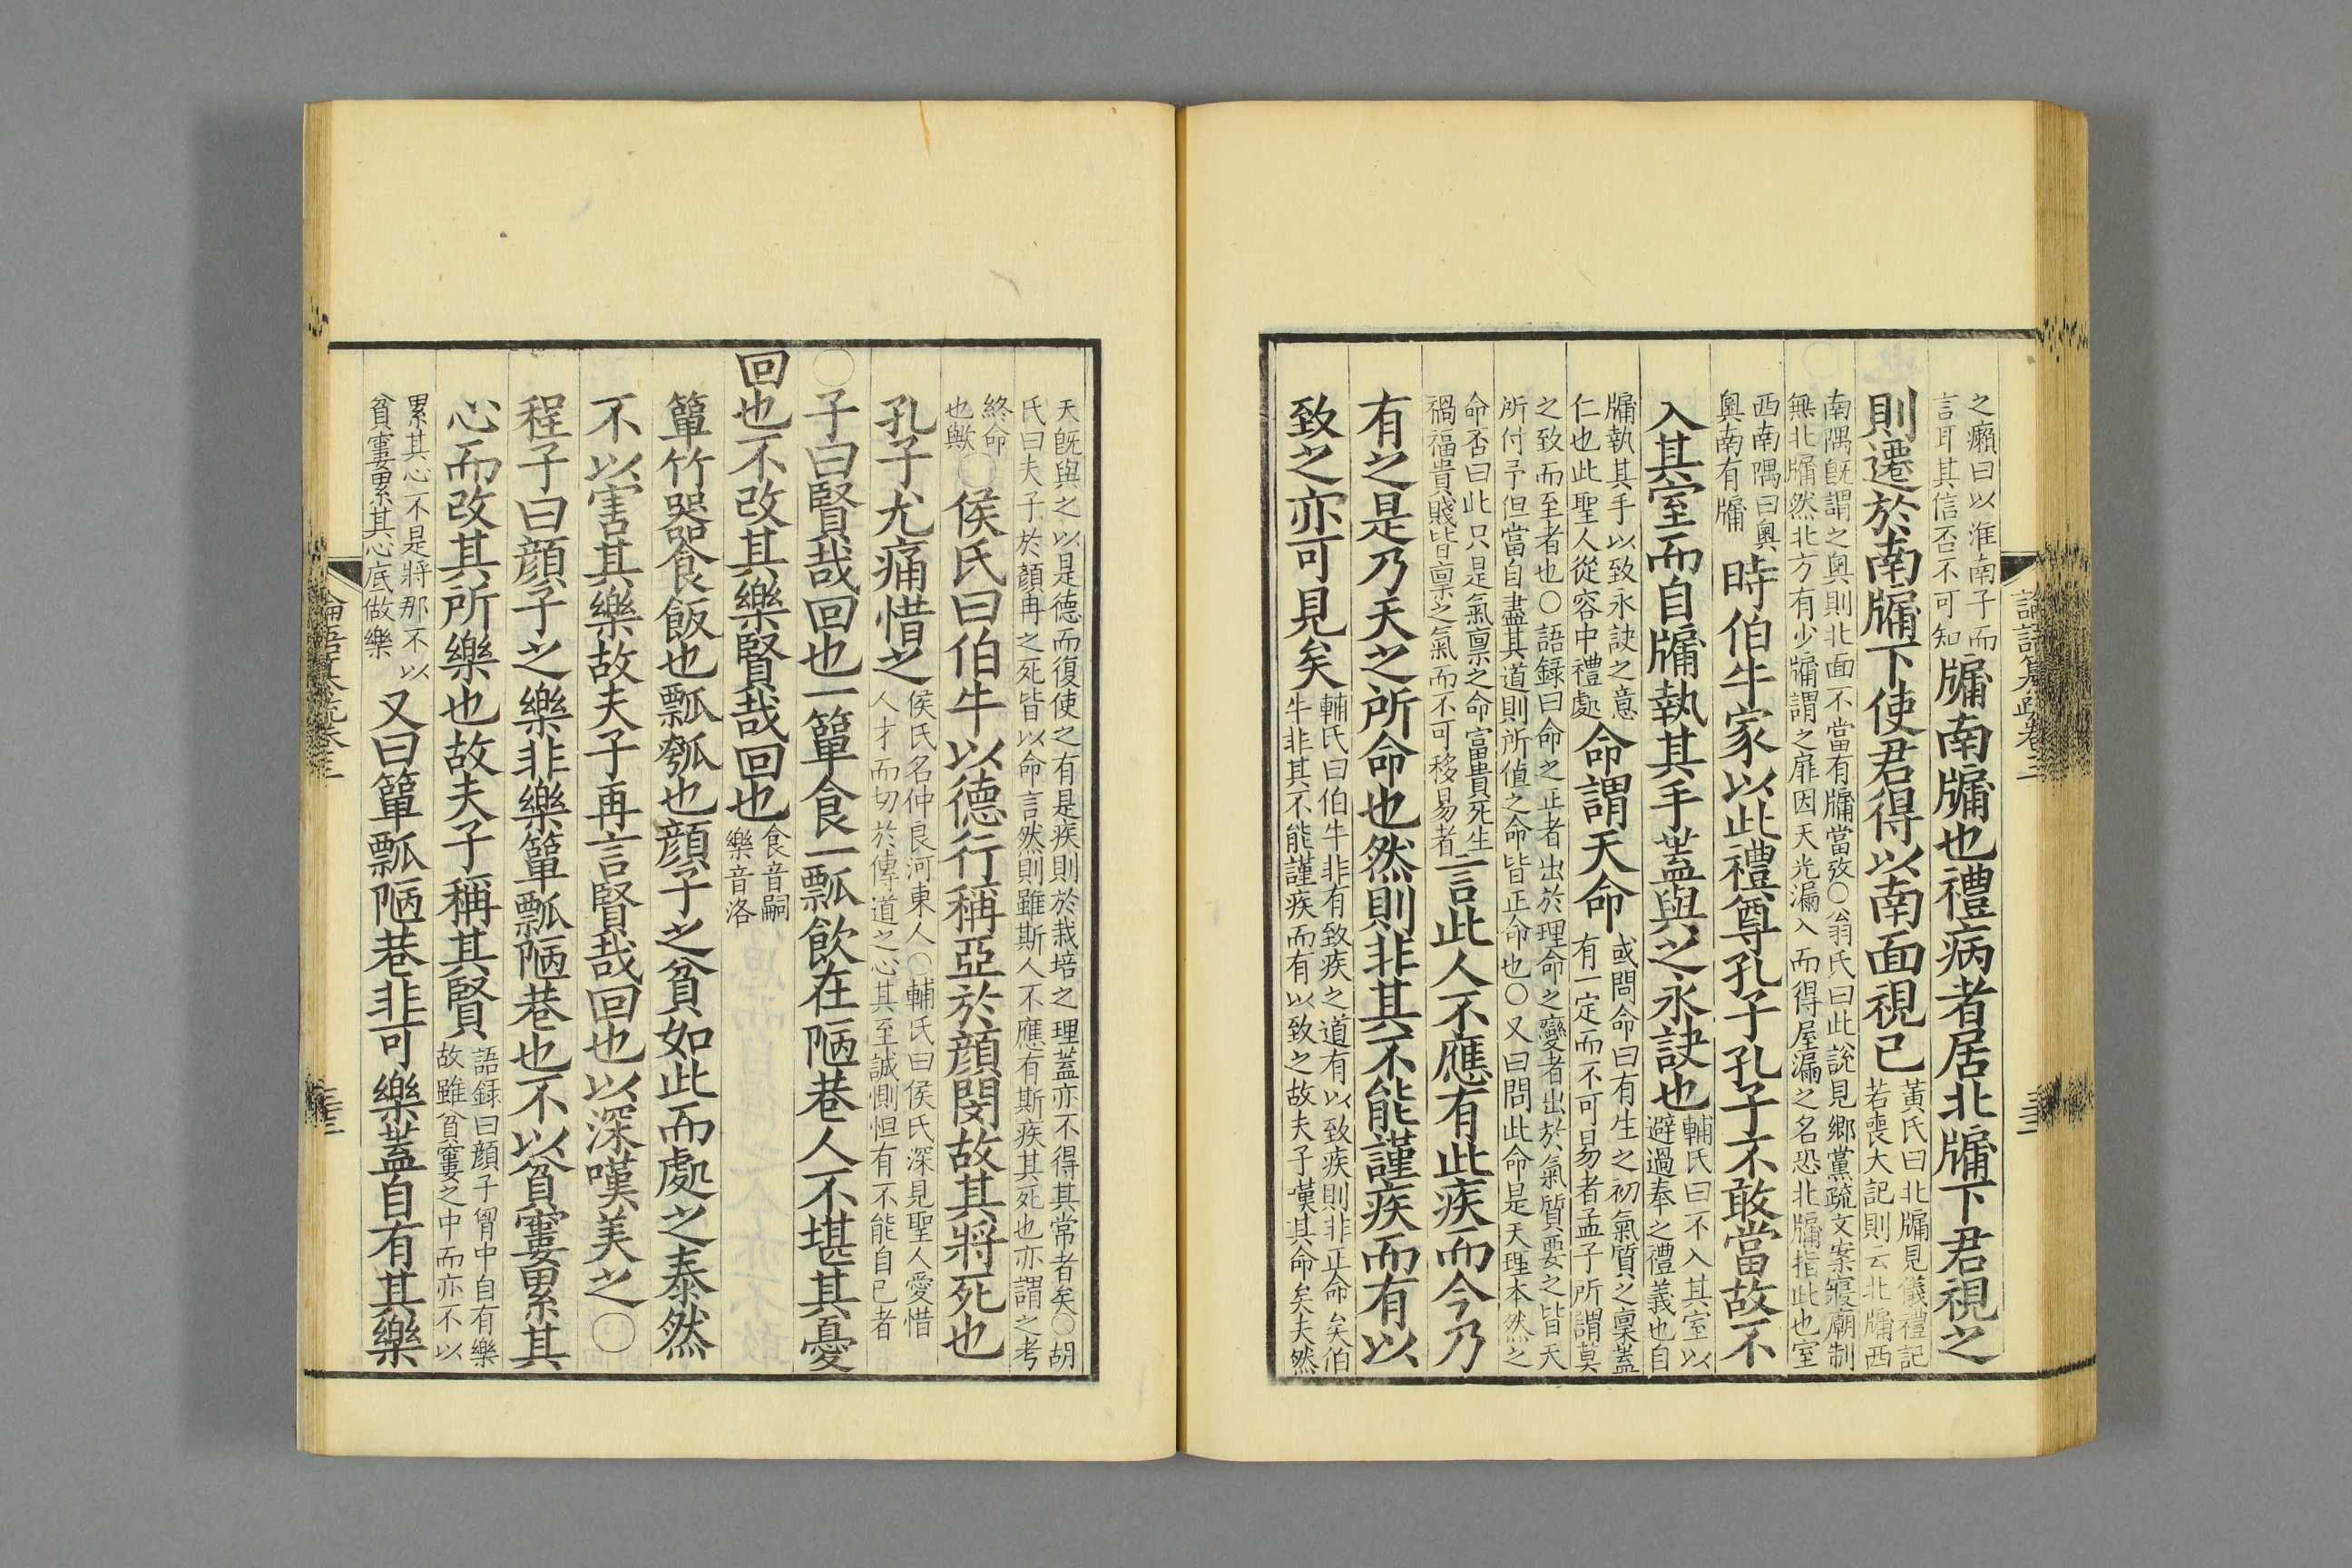 之癩曰以淮南子而
言耳其信否不可知
牖南牖也禮病者居北牖下君視之
則遷於南牖下使君得以南面視己
黃氏曰北牖見儀禮記
若喪大記則云北牖西
南隅旣謂之奥則北面不當有牖當攷○翁氏曰此說見鄉黨疏文案寢廟制
無北牖然北方有少牖謂之扉因天光漏入而得屋漏之名恐北牖指此也室
西南隅曰奥
奥南有牖
時伯牛家以此禮尊孔子孔子不敢當故不
入其室而自牖執其手蓋與之永訣也
輔氏曰不入其室以
避過奉之禮義也自
牖執其手以致永訣之意
仁也此聖人從容中禮處
命謂天命
或問命曰有生之初氣質之稟蓋
有一定而不可易者孟子所謂莫
之致而至者也○語録曰命之正者出於理命之變者出於氣質要之皆天
所付予但當自盡其道則所值之命皆正命也○又曰問此命是天理本然之
命否曰此只是氣禀之命富貴死生
禍福貴賤皆禀之氣而不可移易者
言此人不應有此疾而今乃
有之是乃天之所命也然則非其不能謹疾而有以
致之亦可見矣
輔氏曰伯牛非有致疾之道有以致疾則非正命矣伯
牛非其不能謹疾而有以致之故夫子嘆其命矣夫然
論語纂疏卷三
三十二
天旣與之以是德而復使之有是疾則於栽培之理蓋亦不得其常者矣○胡
氏曰夫子於顏冉之死皆以命言然則雖斯人不應有斯疾其死也亦謂之考
終命
也歟
○侯氏曰伯牛以德行稱亞於顔閔故其將死也
孔子尤痛惜之
侯氏名仲良河東人○輔氏曰侯氏深見聖人愛惜
人才而切於傳道之心其至誠惻怛有不能自已者
○子曰賢哉回也一簞食一瓢飲在陋巷人不堪其憂
回也不改其樂賢哉回也
食音嗣
樂音洛
簞竹器食飯也瓢瓠也顔子之貧如此而處之泰然
不以害其樂故夫子再言賢哉回也以深嘆美之○
程子曰顔子之樂非樂簞瓢陋巷也不以貧窶累其
心而改其所樂也故夫子稱其賢
語録曰顔子胷中自有樂
故雖貧窶之中而亦不以
累其心不是將那不以
貧窶累其心底做樂
又曰簞瓢陋巷非可樂蓋自有其樂
論語纂疏卷三
三十三